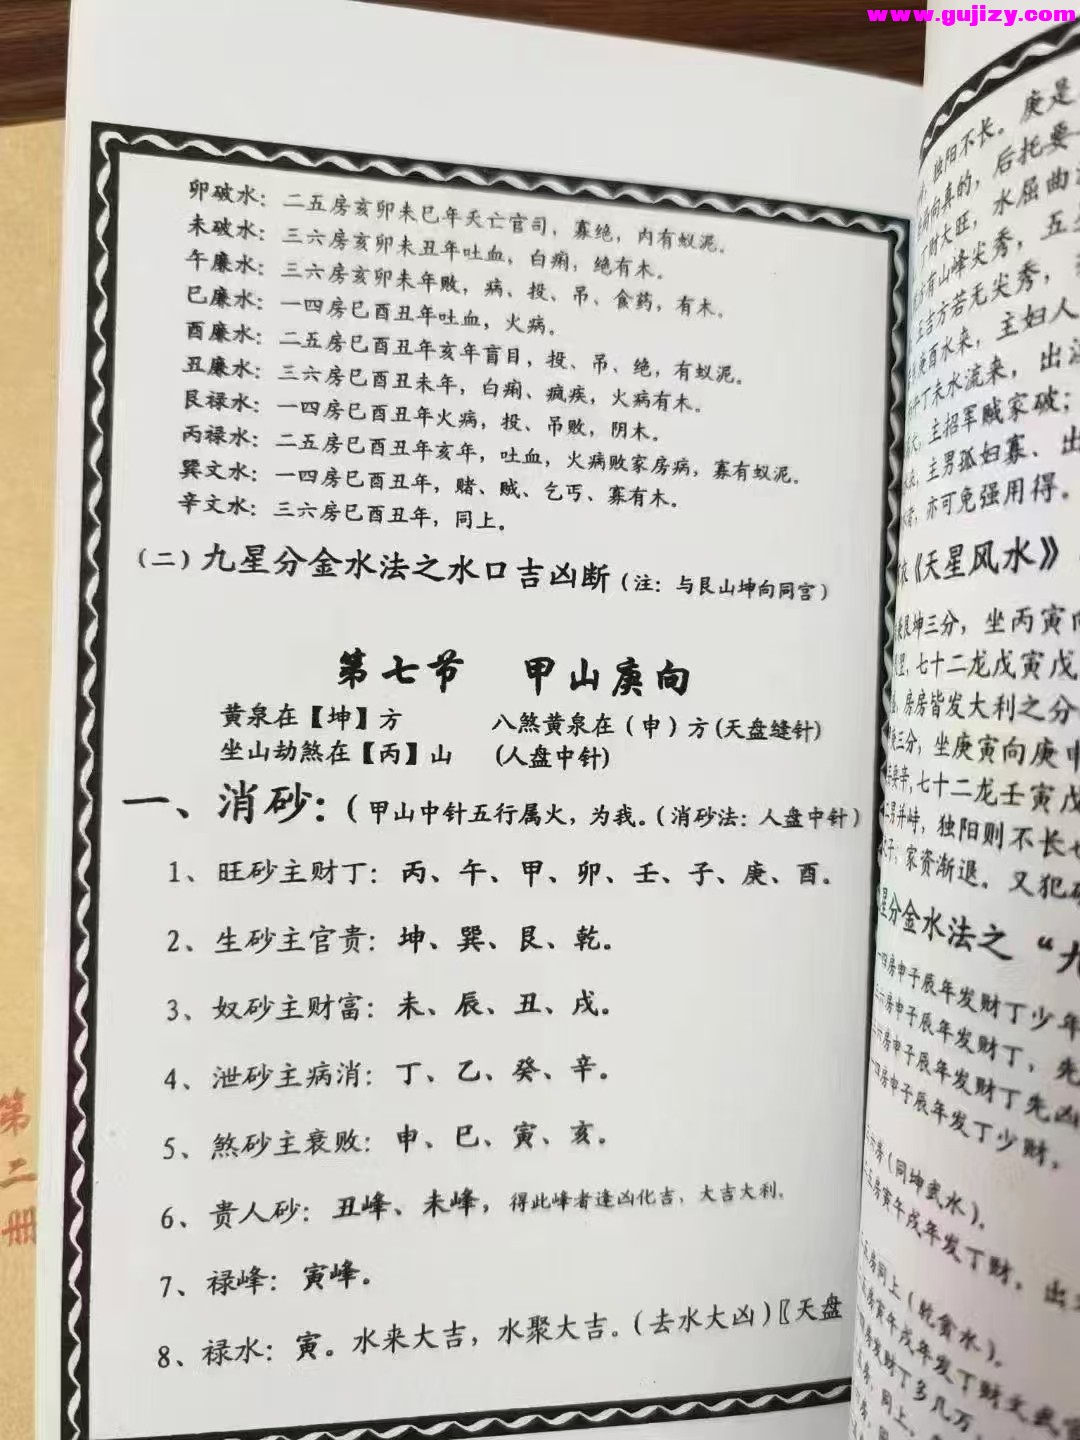 www.gujizy.com
卯破水：二五房亥卯未巳年夭亡官司，寡绝，内有蚁泥。
未破水：三六房亥卯未丑年吐血，白痢，绝有木。
午廉水：三六房亥卯未年败，病、投、吊、食药，有木。
巳廉水：一四房巳酉丑年吐血，火病。
酉廉水：二五房巳酉丑年亥年盲目，投、吊、绝，有蚁泥。
丑廉水：三六房巳酉丑未年，白痢、疯疾，火病有木。
艮禄水：一四房巳酉丑年火病，投、吊败，阴木。
丙禄水：二五房巳酉丑年亥年，吐血，火病败家房病，寡有蚁泥。
巽文水：一四房巳酉丑年，赌、贼、乞丐、寡有木。
辛文水：三六房巳酉丑年，同上。
（二）九星分金水法之水口吉凶断（注：与艮山坤向同宫）
第七节 甲山庚向
黄泉在【坤】方 八煞黄泉在（申）方(天盘缝针)
坐山劫煞在【丙】山 (人盘中针)
一、消砂：（甲山中针五行属火，为我。（消砂法：人盘中针）
1、旺砂主财丁：丙、午、甲、卯、壬、子、庚、酉。
2、生砂主官贵：坤、巽、艮、乾。
3、奴砂主财富：未、辰、丑、戌。
4、泄砂主病消：丁、乙、癸、辛。
5、煞砂主衰败：申、巳、寅、亥。
6、贵人砂：丑峰、未峰，得此峰者逢凶化吉，大吉大利。
7、禄峰：寅峰。
8、禄水：寅。水来大吉，水聚大吉。（去水大凶）〖天盘
第二册
独阳不长。庚是
向真的，后托要
丁财大旺，水屈曲
方有山峰尖秀，五
五吉方若无尖秀，
庚酉水来，主妇人
丁未水流来，出
主招军贼家破；
主男孤妇寡、出
亦可免强用得。
《天星风水》
艮坤三分，坐丙寅向
七十二龙戊寅戊
房房皆发大利之分
庚三分，坐庚寅向庚申
七十二龙壬寅戊
男并峙，独阳则不长
家资渐退。又犯
星分金水法之“九
一四房申子辰年发财丁少年
六房申子辰年发财丁，先
六房申子辰年发财丁先凶
一四房申子辰年发丁少财，
六房（同坤武水）。
五房寅午戌年发丁财，出
五房同上（乾贪水）。
五房寅午戌年发丁财文武官
四房发财丁多几万，
同上，